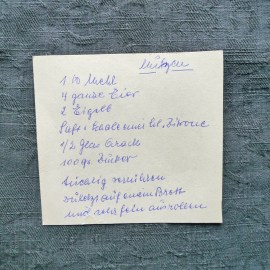 Mützen
1 ℔ Mehl
4 ganze Eier
2 Eigelb
Saft + Schale einer Zitrone
1/2 Glas Arrach
100 gr Zucker
tüchtig verrühren
zuletzt auf einem Brett
und sehr fein ausrollen